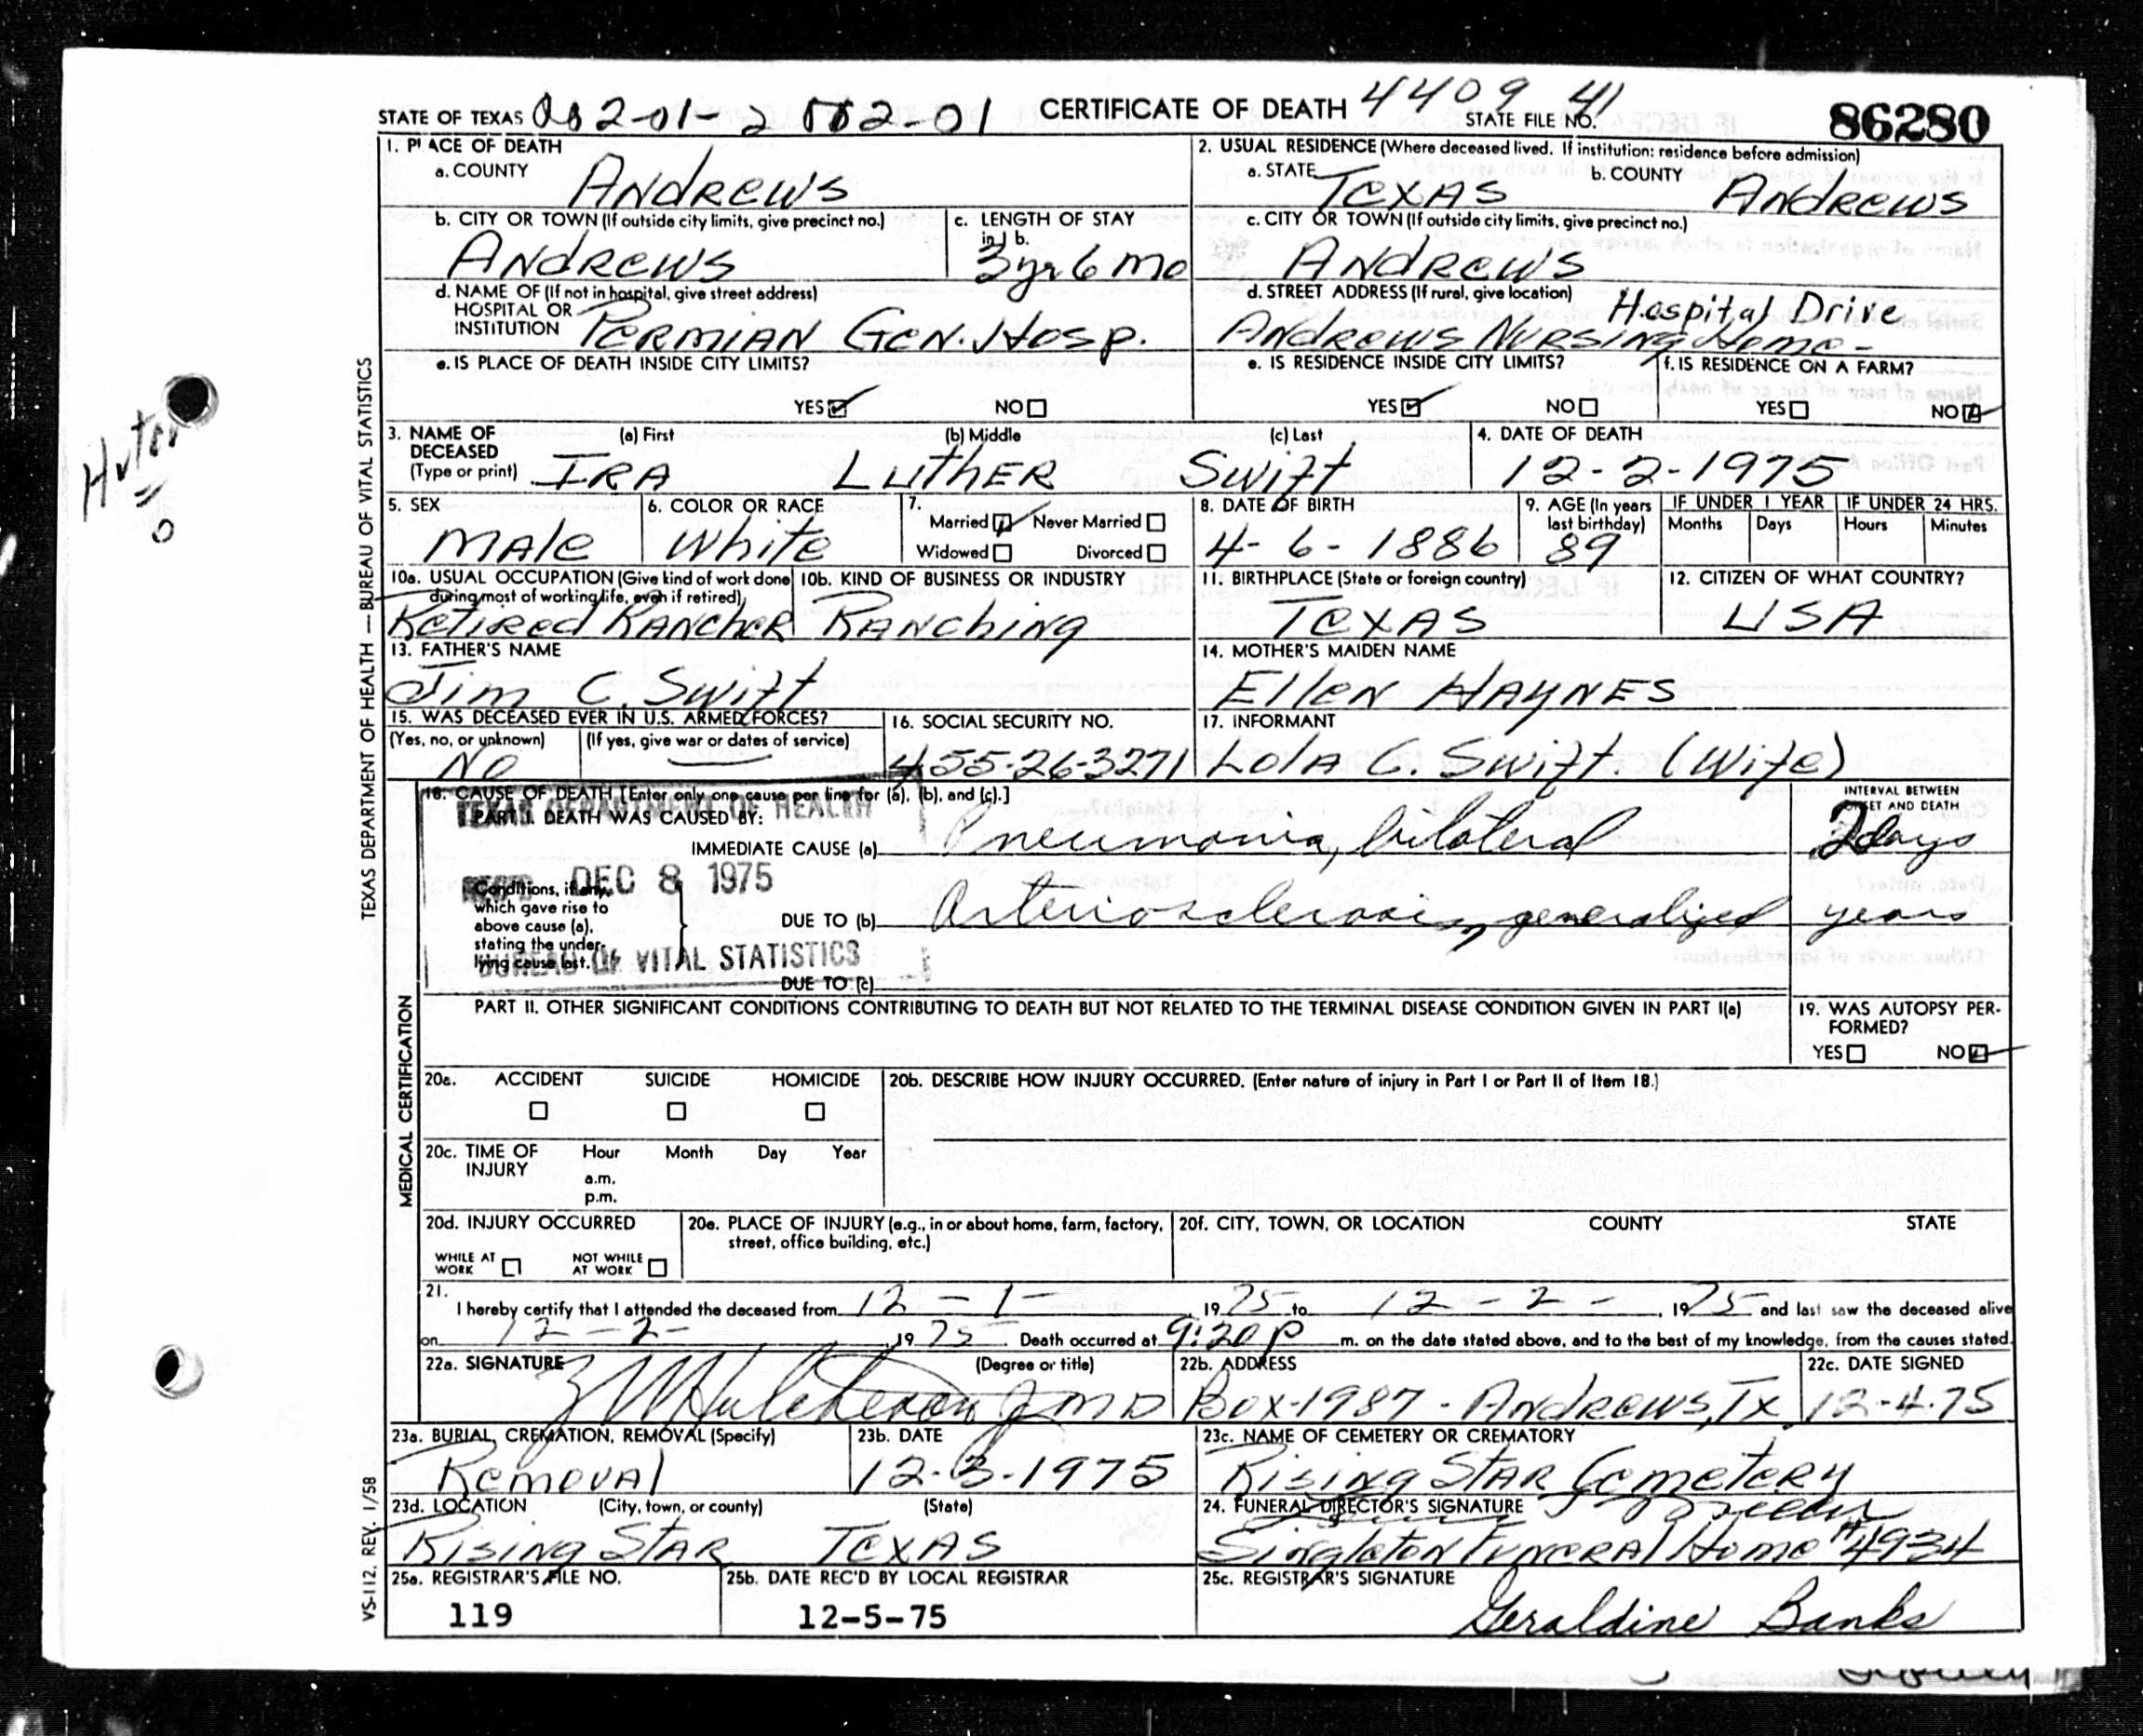 STATE OF TEXAS 002-01-2 002-01 CERTIFICATE OF DEATH 4409 41 STATE FILE NO. 86280
1. PLACE OF DEATH
a. COUNTY Andrews
2. USUAL RESIDENCE (Where deceased lived. If institution: residence before admission)
a. STATE Texas b. COUNTY Andrews
b. CITY OR TOWN (If outside city limits, give precinct no.) Andrews
c. LENGTH OF STAY in 1 b. 3 yr 6 mo
c. CITY OR TOWN (If outside city limits, give precinct no.) Andrews
d. NAME OF (If not in hospital, give street address)
HOSPITAL OR
INSTITUTION Permian Gen. Hosp.
d. STREET ADDRESS (If rural, give location) Hospital Drive
Andrews Nursing Home -
e. IS PLACE OF DEATH INSIDE CITY LIMITS?
YES NO
e. IS RESIDENCE INSIDE CITY LIMITS?
YES NO
f. IS RESIDENCE ON A FARM?
YES NO
3. NAME OF DECEASED (Type or print)
(a) First (b) Middle (c) Last
Ira Luther Swift
4. DATE OF DEATH
12-2-1975
5. SEX
Male
6. COLOR OR RACE
White
7.
Married Never Married
Widowed Divorced
8. DATE OF BIRTH
4-6-1886
9. AGE (In years last birthday)
89
IF UNDER 1 YEAR
Months Days
IF UNDER 24 HRS.
Hours Minutes
10a. USUAL OCCUPATION (Give kind of work done
during most of working life, even if retired)
Retired Rancher
10b. KIND OF BUSINESS OR INDUSTRY
Ranching
11. BIRTHPLACE (State or foreign country)
Texas
12. CITIZEN OF WHAT COUNTRY?
USA
13. FATHER'S NAME
Jim C. Swift
14. MOTHER'S MAIDEN NAME
Ellen Haynes
15. WAS DECEASED EVER IN U.S. ARMED FORCES?
(Yes, no, or unknown) (If yes, give war or dates of service)
No —
16. SOCIAL SECURITY NO.
455-26-3271
17. INFORMANT
Lola C. Swift. (Wife)
18. CAUSE OF DEATH [Enter only one cause per line for (a), (b), and (c).]
TEXAS DEPARTMENT OF HEALTH
PART I. DEATH WAS CAUSED BY:
INTERVAL BETWEEN
ONSET AND DEATH
IMMEDIATE CAUSE (a) Pneumonia, bilateral 2 days
REC'D DEC 8 1975
Conditions, if any,
which gave rise to
above cause (a),
stating the under-
lying cause last.
DUE TO (b) Arteriosclerosis, generalized years
BUREAU OF VITAL STATISTICS
DUE TO (c)
PART II. OTHER SIGNIFICANT CONDITIONS CONTRIBUTING TO DEATH BUT NOT RELATED TO THE TERMINAL DISEASE CONDITION GIVEN IN PART I(a)
19. WAS AUTOPSY PER-
FORMED?
YES NO
20a. ACCIDENT SUICIDE HOMICIDE
20b. DESCRIBE HOW INJURY OCCURRED. (Enter nature of injury in Part I or Part II of Item 18.)
20c. TIME OF INJURY
Hour Month Day Year
a.m.
p.m.
20d. INJURY OCCURRED
WHILE AT WORK NOT WHILE AT WORK
20e. PLACE OF INJURY (e.g., in or about home, farm, factory,
street, office building, etc.)
20f. CITY, TOWN, OR LOCATION COUNTY STATE
21.
I hereby certify that I attended the deceased from 12-1-, 1975 to 12-2-, 1975 and last saw the deceased alive
on 12-2-, 1975. Death occurred at 9:20 p m. on the date stated above, and to the best of my knowledge, from the causes stated.
22a. SIGNATURE (Degree or title)
Hutcheson Jr MD
22b. ADDRESS
Box-1987 - Andrews, Tx
22c. DATE SIGNED
12-4-75
23a. BURIAL, CREMATION, REMOVAL (Specify)
Removal
23b. DATE
12-3-1975
23c. NAME OF CEMETERY OR CREMATORY
Rising Star Cemetery
23d. LOCATION (City, town, or county) (State)
Rising Star Texas
24. FUNERAL DIRECTOR'S SIGNATURE
Singleton Funeral Home #4934
25a. REGISTRAR'S FILE NO.
119
25b. DATE REC'D BY LOCAL REGISTRAR
12-5-75
25c. REGISTRAR'S SIGNATURE
Geraldine Banks
TEXAS DEPARTMENT OF HEALTH — BUREAU OF VITAL STATISTICS
MEDICAL CERTIFICATION
VS-112, REV. 1/58